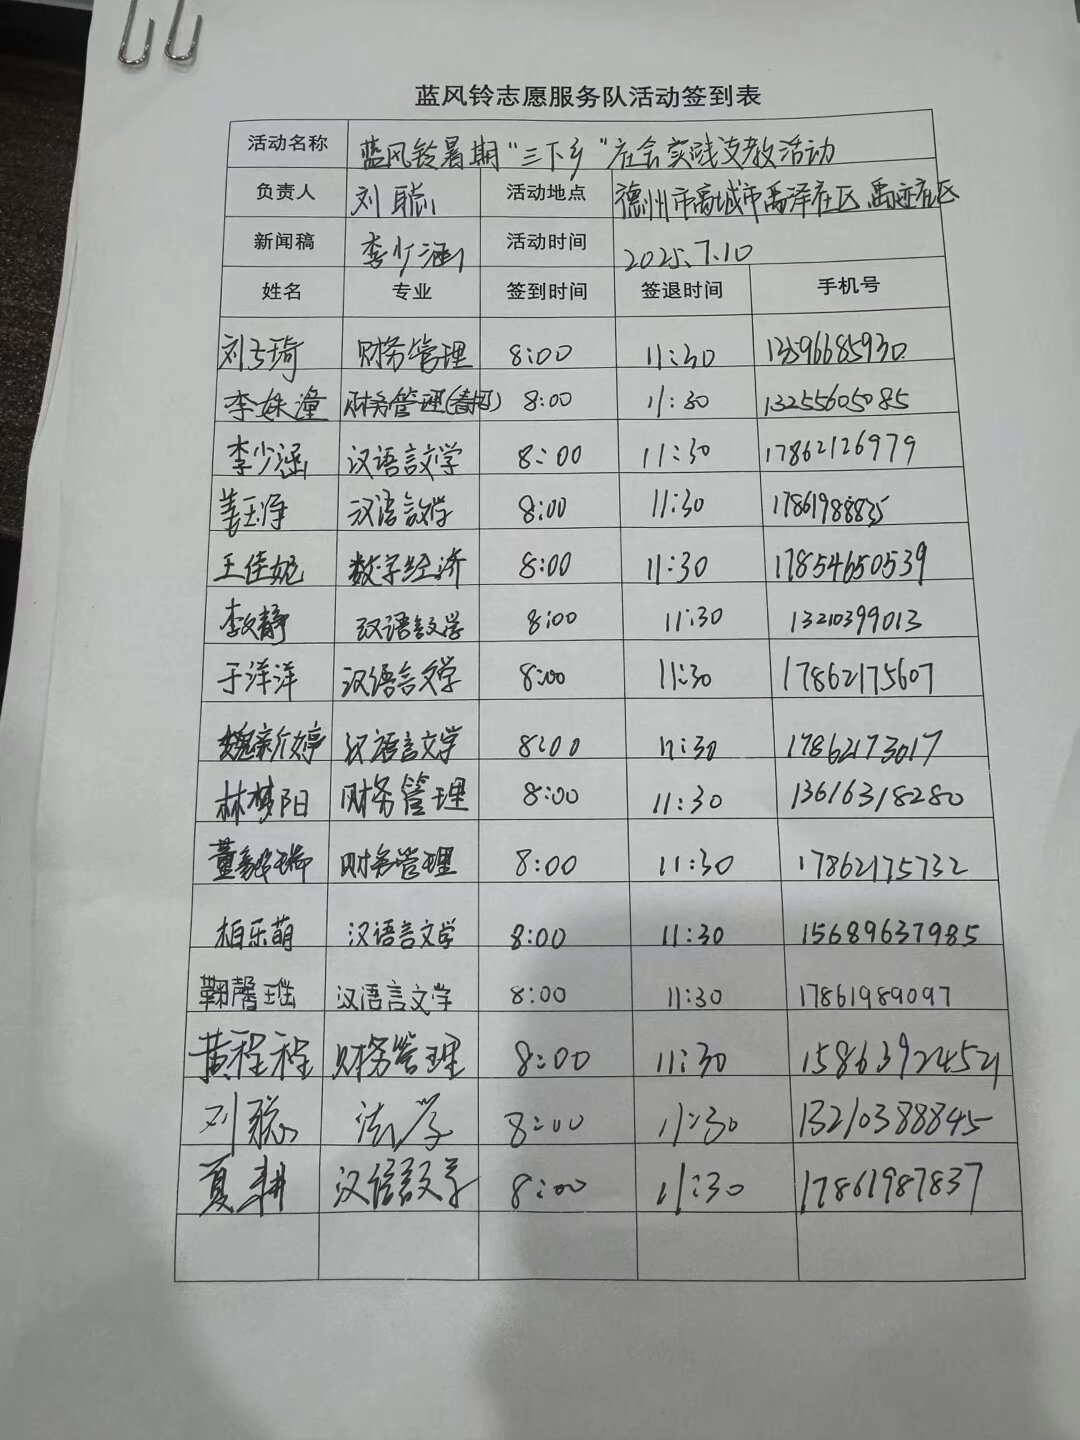 蓝风铃志愿服务队活动签到表
活动名称 蓝风铃暑期"三下乡"社会实践支教活动
负责人 刘聪 活动地点 德州市禹城市禹泽社区、禹迹社区
新闻稿 李少涵 活动时间 2025.7.10
姓名 专业 签到时间 签退时间 手机号
刘 琦 财务管理 8:00 11:30 13596685930
李姝潼 财务管理(春招) 8:00 11:30 13255605085
李少涵 汉语言文学 8:00 11:30 17862126979
姜玉净 汉语言文学 8:00 11:30 17861988835
王佳妮 数字经济 8:00 11:30 17854650539
李文静 汉语言文学 8:00 11:30 13210399013
于洋洋 汉语言文学 8:00 11:30 17862175607
魏新婷 汉语言文学 8:00 11:30 17862173017
林梦阳 财务管理 8:00 11:30 13616318280
董 瑞 财务管理 8:00 11:30 17862175732
柏乐萌 汉语言文学 8:00 11:30 15689637985
鞠馨 汉语言文学 8:00 11:30 17861989097
黄程程 财务管理 8:00 11:30 15863924521
刘聪 法学 8:00 11:30 13210388845
夏耕 汉语言文学 8:00 11:30 17861987837